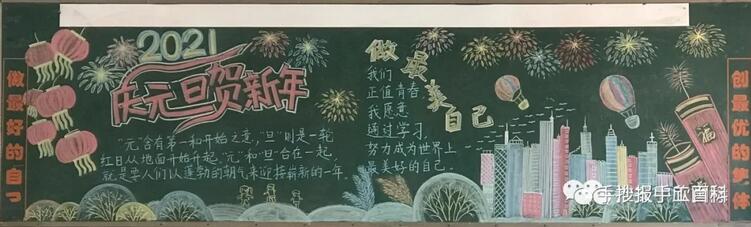 做最好的自己
2021
庆元旦贺新年
"元"含有第一和开始之意,"旦"则是一轮
红日从地面开始升起,"元"和"旦"合在一起,
就是要人们以蓬勃的朝气来迎接崭新的一年。
做最美自己
我们
正值青春,
我愿意
通过学习,
努力成为世界上
最美好的自己。
福
创最优的集体
手抄报手账百科